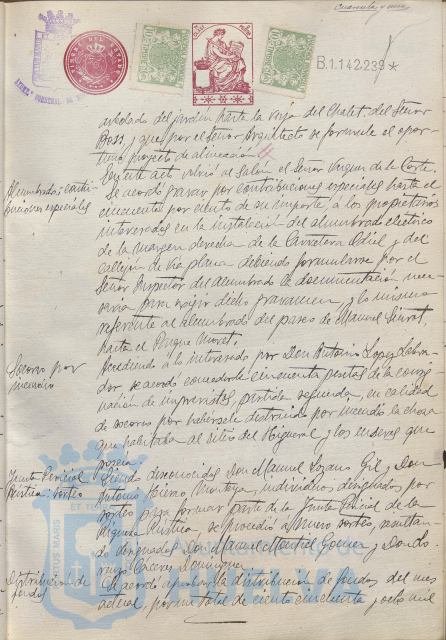 Cuarenta y una
TIMBRE DEL ESTADO
B.1.142.239*
arbolado del jardin hasta la verja del Chalet del Señor
Boss, y que por el Señor Arquitecto se formule el opor-
tuno proyecto de alineación.
En este acto volvió al Salón el Señor Vergara de la Corte.
Alumbrado: contri-
buciones especiales
Se acordó gravar por contribuciones especiales hasta el
cincuenta por ciento de su importe a los propietarios
interesados en la instalación del alumbrado eléctrico
de la margen derecha de la Carretera Odiel y del
callejón de Via plana debiendo formularse por el
Señor Inspector del alumbrado la documentación nece-
saria para exigir dicho gravamen, y lo mismo
referente al alumbrado del paseo de Manuel Siurot,
hasta el Parque Moret.
Socorro por
incendio
Accediendo a lo interesado por Don Antonio Lopez Labra-
dor se acordó concederle cincuenta pesetas de la consig-
nación de imprevistos, partida segunda, en calidad
de socorro por habérsele destruido por incendio la choza
que habitaba al sitio del Higueral y los enseres que
poseía.
Junta Pericial
Rústica: sorteo
Siendo desconocidos Don Manuel Lozano Gil y Don
Antonio Fierro Montoya, individuos designados por
sorteo para formar parte de la Junta Pericial de la
Riqueza Rústica se procedió a nuevo sorteo, resultan-
do designados Don Manuel Montiel Gomez y Don Lo-
renzo Caceres Dominguez
Distribución de
fondos
Se acordó aprobar la distribución de fondos del mes
actual, por un total de ciento cincuenta y ocho mil